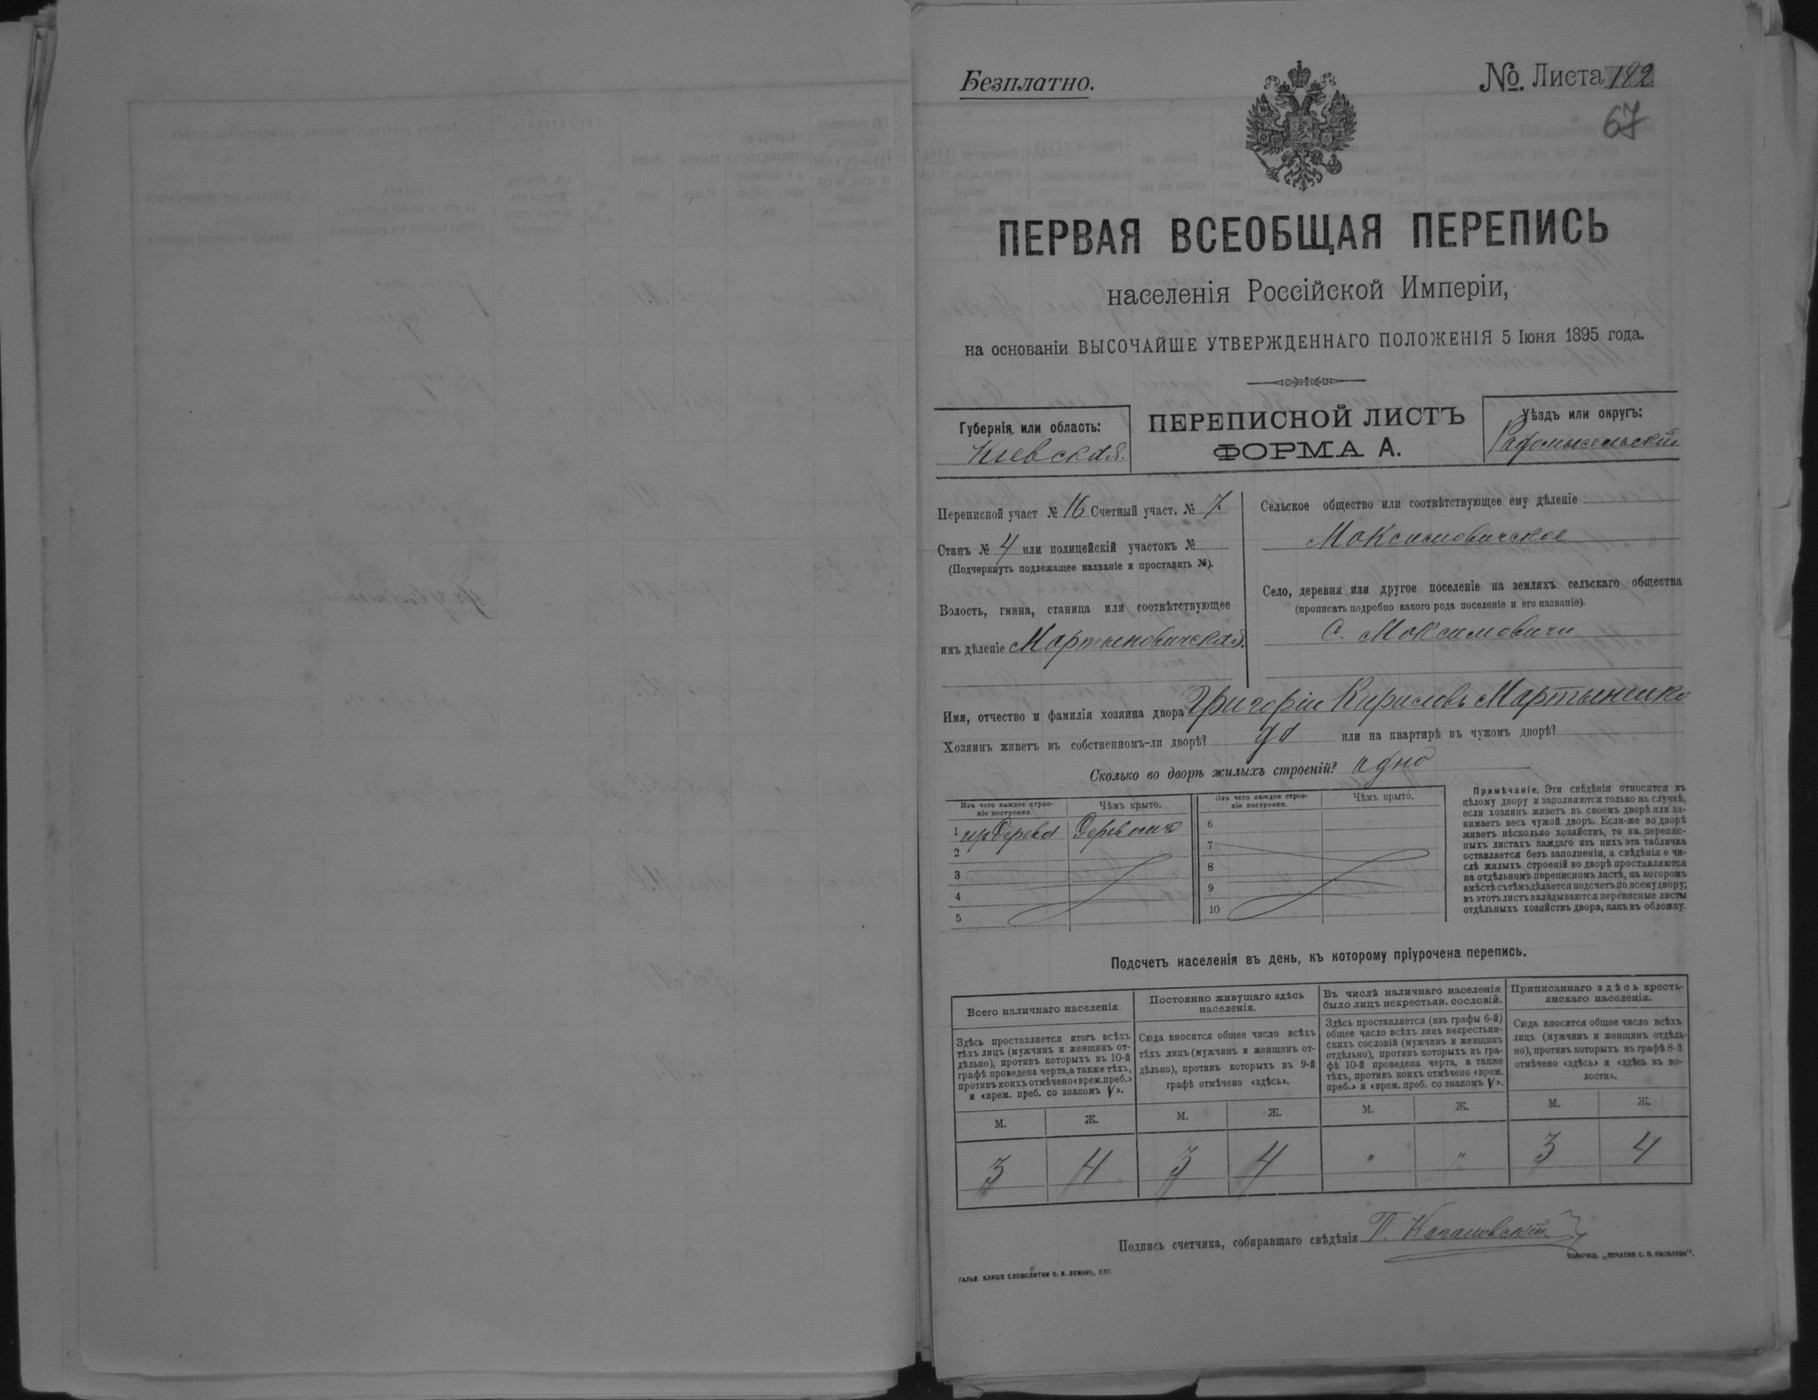 Безплатно.
№. Листа 182
67
ПЕРВАЯ ВСЕОБЩАЯ ПЕРЕПИСЬ
населенія Россійской Имперіи,
на основаніи ВЫСОЧАЙШЕ УТВЕРЖДЕННАГО ПОЛОЖЕНІЯ 5 Іюня 1895 года.
Губернія или область:
Кіевская.
ПЕРЕПИСНОЙ ЛИСТЪ
ФОРМА А.
Уѣздъ или округъ:
Радомысльскій
Переписной участ № 16 Счетный участ. № 7
Станъ № 4 или полицейскій участокъ №
(Подчеркнуть подлежащее названіе и проставить №).
Волость, гмина, станица или соотвѣтствующее
имъ дѣленіе Мартыновичская.
Сельское общество или соотвѣтствующее ему дѣленіе
Максимовичское
Село, деревня или другое поселеніе на земляхъ сельскаго общества
(прописать подробно какого рода поселеніе и его названіе).
С. Максимовичи
Имя, отчество и фамилія хозяина двора Григорій Кириловъ Мартыненко
Хозяинъ живетъ въ собственномъ-ли дворѣ? да или на квартирѣ въ чужомъ дворѣ?
Сколько во дворѣ жилыхъ строеній? одно
Изъ чего каждое строе-
ніе построено.
Чѣмъ крыто.
Изъ чего каждое строе-
ніе построено.
Чѣмъ крыто.
1 изъ дерева Деревомъ
2
3
4
5
6
7
8
9
10
Примѣчаніе. Эти свѣдѣнія относятся къ
цѣлому двору и заполняются только въ случаѣ,
если хозяинъ живетъ въ своемъ дворѣ или за-
нимаетъ весь чужой дворъ. Если-же во дворѣ
живетъ нѣсколько хозяйствъ, то на перепис-
ныхъ листахъ каждаго изъ нихъ эта табличка
оставляется безъ заполненія, а свѣдѣнія о чи-
слѣ жилыхъ строеній во дворѣ проставляются
на отдѣльномъ переписномъ листѣ, на которомъ
вмѣстѣ съ тѣмъ дѣлается подсчетъ по всему двору;
въ этотъ листъ вкладываются переписные листы
отдѣльныхъ хозяйствъ двора, какъ въ обложку.
Подсчетъ населенія въ день, къ которому пріурочена перепись.
Всего наличнаго населенія.
Здѣсь проставляется итогъ всѣхъ
тѣхъ лицъ (мужчинъ и женщинъ от-
дѣльно), противъ которыхъ въ 10-й
графѣ проведена черта, а также тѣхъ,
противъ коихъ отмѣчено «врем. преб.»
и «врем. преб. со знакомъ V».
Постоянно живущаго здѣсь
населенія.
Сюда вносится общее число всѣхъ
тѣхъ лицъ (мужчинъ и женщинъ от-
дѣльно), противъ которыхъ въ 9-й
графѣ отмѣчено «здѣсь».
Въ числѣ наличнаго населенія
было лицъ некрестьян. сословій.
Здѣсь проставляется (изъ графы 6-й)
общее число всѣхъ лицъ некрестьян-
скихъ сословій (мужчинъ и женщинъ
отдѣльно), противъ которыхъ въ гра-
фѣ 10-й проведена черта, а также
тѣхъ, противъ коихъ отмѣчено «врем.
преб.» и «врем. преб. со знакомъ V».
Приписаннаго здѣсь кресть-
янскаго населенія.
Сюда вносится общее число всѣхъ
лицъ (мужчинъ и женщинъ отдѣль-
но), противъ которыхъ въ графѣ 8-й
отмѣчено «здѣсь» и «здѣсь въ во-
лости».
М. Ж. М. Ж. М. Ж. М. Ж.
3 4 3 4 " " 3 4
Подпись счетчика, собиравшаго свѣдѣнія
ГАЛЬВ. КЛИШЕ СЛОВОЛИТНИ О. И. ЛЕМАНЪ, СПБ.
ТОВАРИЩ. „ПЕЧАТНЯ С. П. ЯКОВЛЕВА".